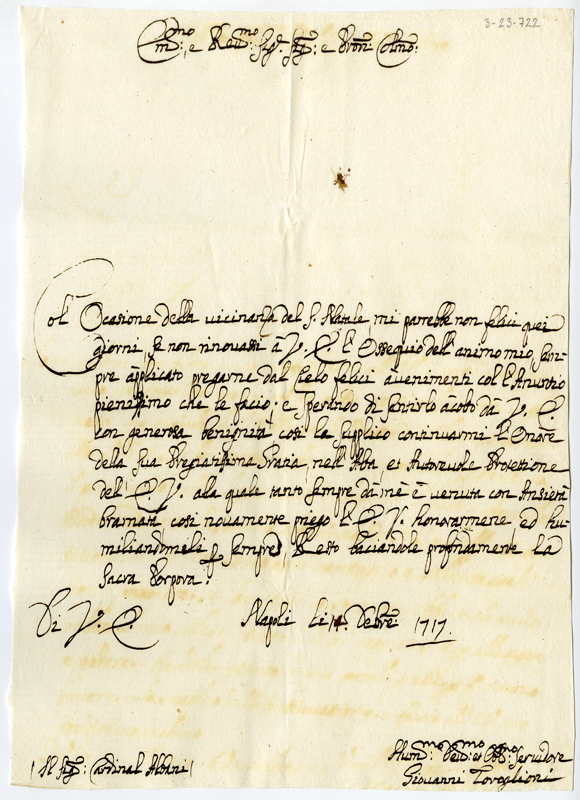 3-23-722
Em:mo, e Reu:mo Sig:r Sig:r e Pron: Colmo:
Col' Ocasione della vicinanza del S. Natale, mi parrebbe non felici quei
giorni, se non rinovassi à V. E. l'Ossequio dell'animo mio, sem-
pre àpplicato pregarne dal Cielo felici àvenimenti col l'Anuntio
pienissimo che le facio; e sperando di sentirlo àcolto dà V. E.
con generosa benignità così la supplico continuarmi l'Onore
della sua Pregiatissima Gratia, nell'Alta, et Autorevole Protettione
del' E. V. alla quale tanto sempre dà me è venuta con Ansietà
bramata così novamente priego l'E. V. honorarmene, ed hu-
miliandomeli p sempre, Resto baciandole profondamente la
Sacra Porpora.
Di V. E. Napoli li 14. Xbre: 1717.
Hum:mo Deu:mo et Obb:mo Servidore
/ Al Sig:r Cardinal Albani / Giovanni